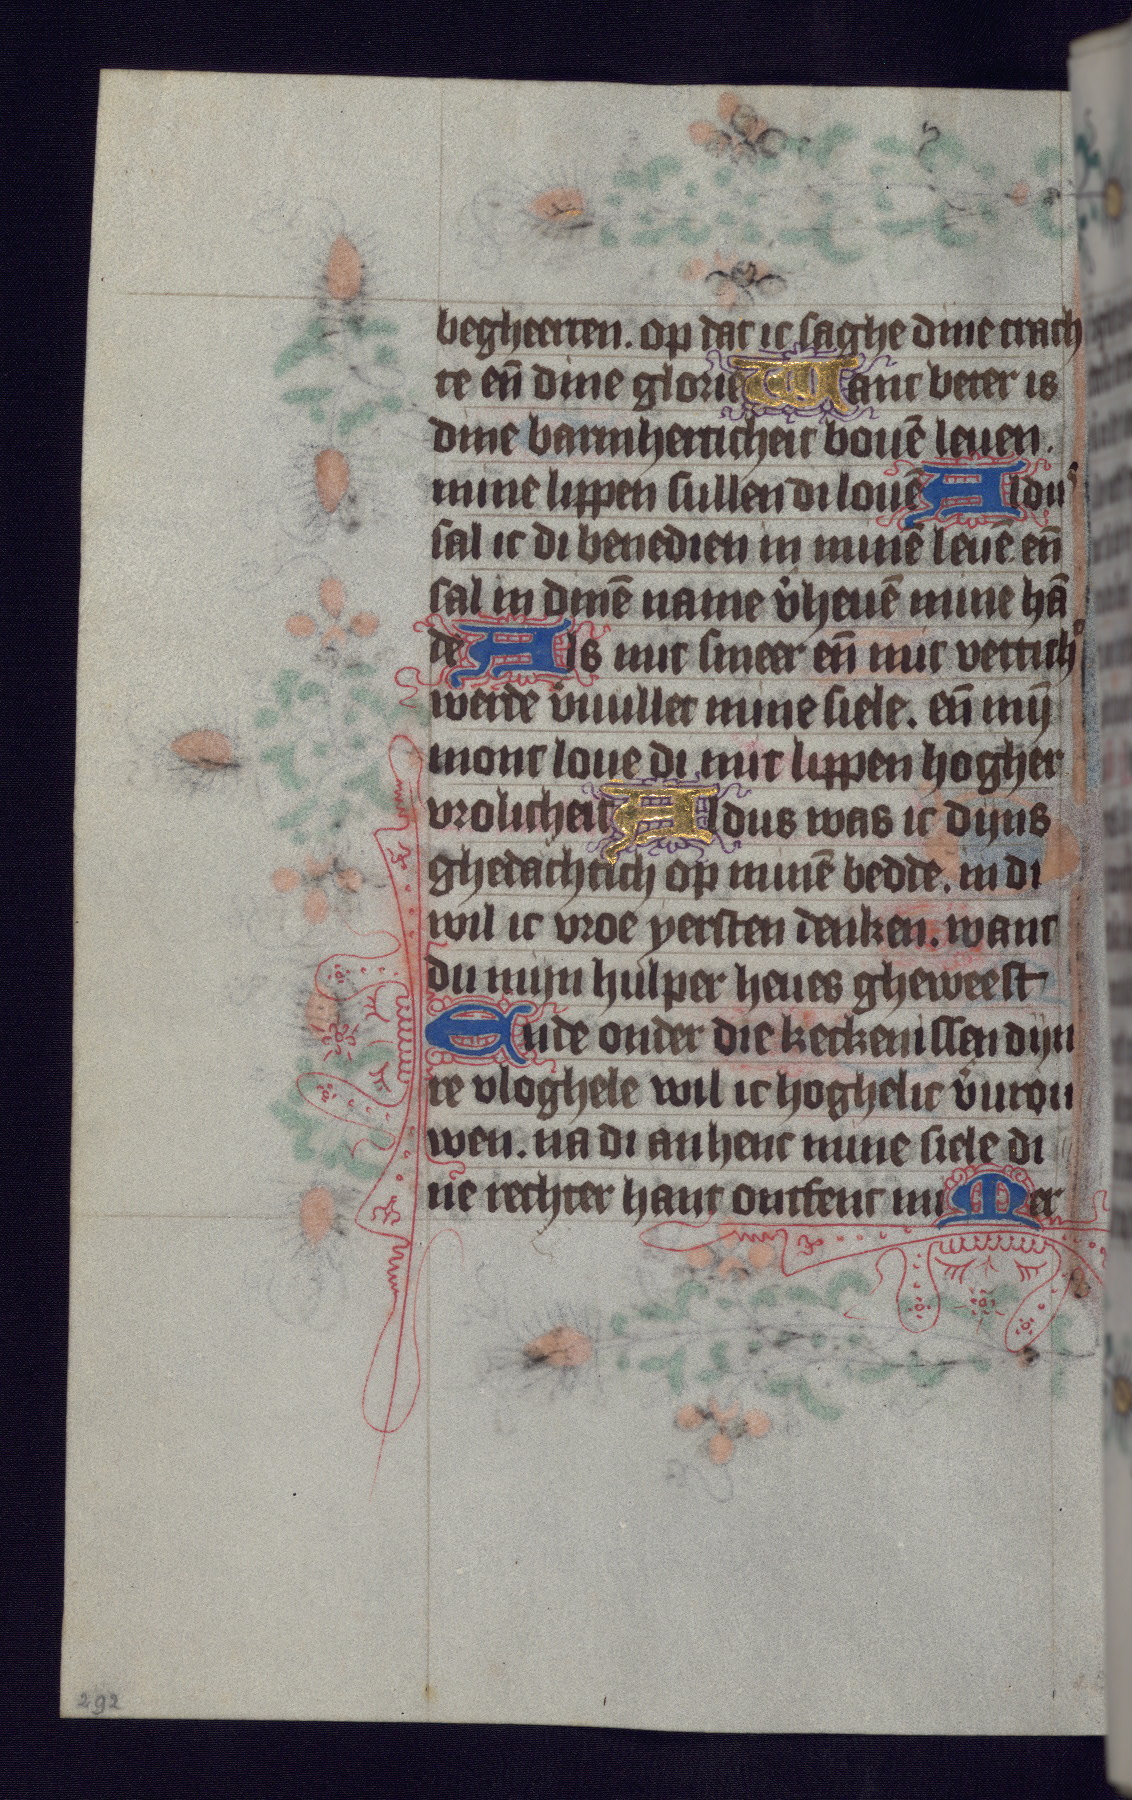 begheerten. op dat ic saghe dine crach
te eñ dine glorie Want beter is
dine barmherticheit bouē leuen.
mine lippen sullen di louē Aldus
sal ic di benedien in minē leuē eñ
sal in dinē name v̾heuē mine hā
de Als mit smeer eñ mit vettich
werde v̾uullet mine siele. eñ mȳ
mont loue di mit lippen hogher
vrolicheit Aldus was ic dijns
ghedachtich op minē bedde. in di
wil ic vroe yersten denken. want
du mijn hulper heues gheweest
Ende onder die keckenissen dijn
re vloghele wil ic hoghelic v̾urou
wen. na di anhenc mine siele di
ne rechter hant ontfenc mi Mer
292